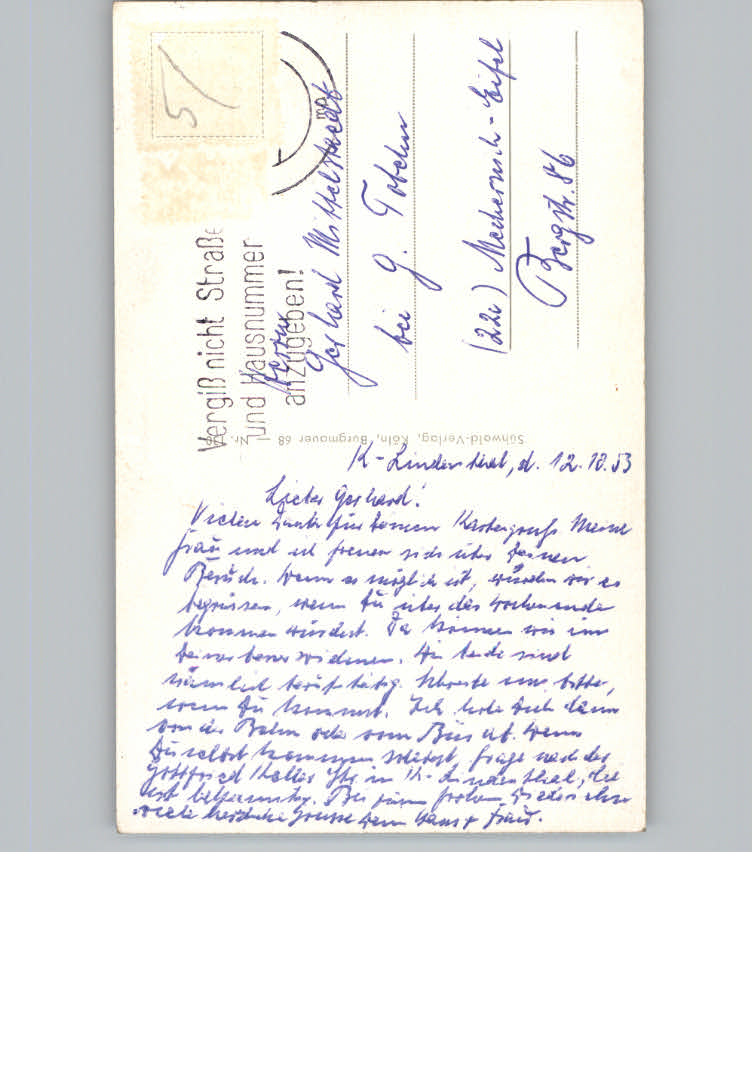 5/
Vergiß nicht Straße
und Hausnummer
anzugeben!
Herrn
Gerhard Mittelstaedt
bei G. Tobehn
(22c) Mechernich-Eifel
Bergstr. 86
Sünwald-Verlag, Köln, Burgmauer 68 — Nr.
K-Lindenthal, d. 12.10.53
Lieber Gerhard!
Vielen Dank für Deinen Kartengruß. Meine
Frau und ich freuen uns über Deinen
Besuch. Wenn es möglich ist, würden wir es
begrüssen, wenn Du über das Wochenende
kommen würdest. Da können wir uns
Deiner besser widmen. Wir beide sind
nämlich berufstätig. Schreibe uns bitte,
wann Du kommst. Ich hole Dich dann
von der Bahn oder vom Bus ab. Wenn
Du selbst kommen solltest, frage nach der
Gottfried Keller Str. in K-Lindenthal, die
ist bekannt. Bis zum frohen Wiedersehen
viele herzliche Grüsse Dein Hans + Frau.